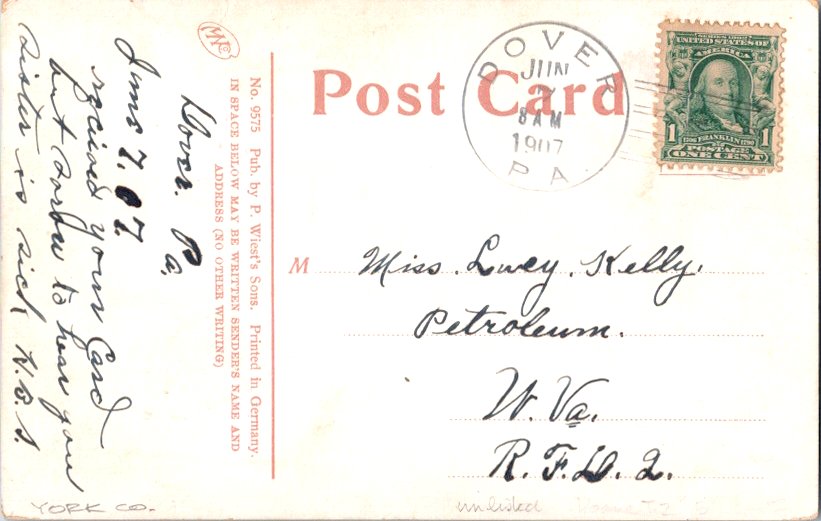 Dover. Pa,
June 7, 07.
recieved your Card
but sorow to hear you
sister is sick, H.B.S.
No. 9575 Pub. by P. Wiest's Sons. Printed in Germany.
IN SPACE BELOW MAY BE WRITTEN SENDER'S NAME AND
ADDRESS (NO OTHER WRITING)
Post Card
DOVER
JUN
7
8 AM
1907
PA.
SERIES 1902
UNITED STATES OF
AMERICA
1706 FRANKLIN 1790
1 POSTAGE 1
ONE CENT
M Miss. Lucy. Kelly.
Petroleum.
W. Va.
R. F. D. 2.
YORK CO.
unlisted